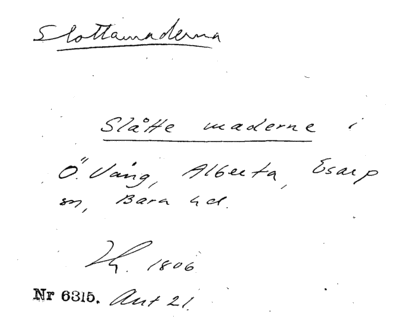 Slottamaderna
Slåtte maderne i
Ö. Vång, Alberta, Esarp
sn, Bara hd.
1806
Nr 6315. Akt 21.